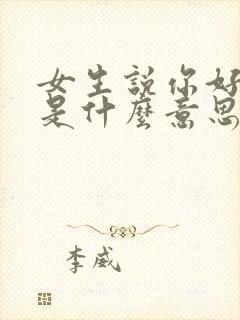 女生說你好
是什麼意思
李威